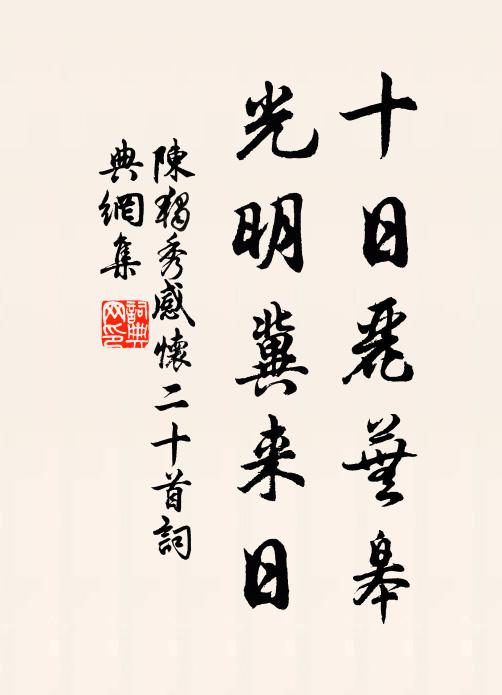 十日麗蕪皋
光明冀来日
陳獨秀感懷二十首詞
典網集
詞典网印